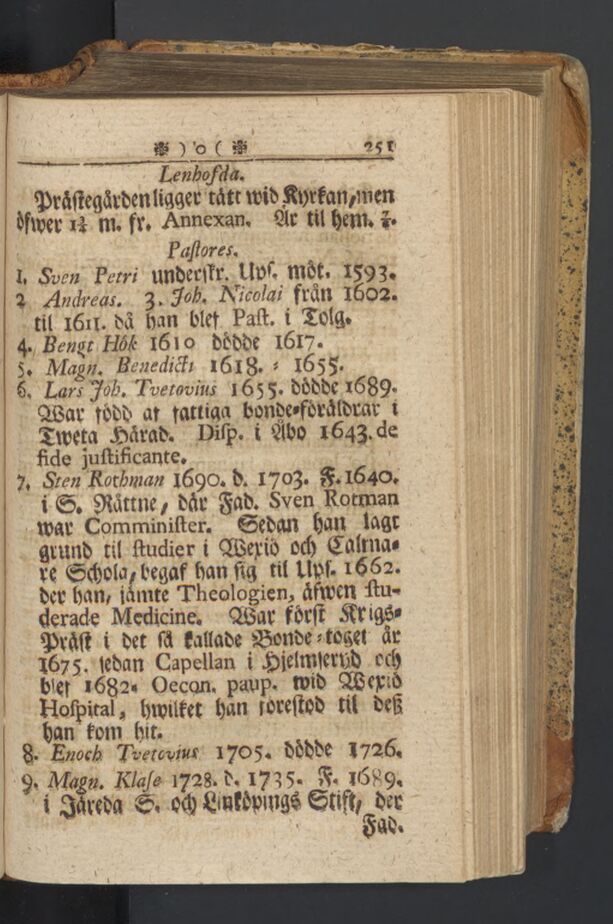 ❉ ) o ( ❉ 251
Lenhofda.
Prästegården ligger tätt wid Kyrkan, men
öfwer 1¾ m. fr. Annexan. Är til hem. ⅞.
Pastores.
1. Sven Petri underskr. Ups. möt. 1593.
2 Andreas. 3. Joh. Nicolai från 1602.
til 1611. då han blef Past. i Tolg.
4. Bengt Hök 1610 dödde 1617.
5. Magn. Benedicti 1618. - 1655.
6. Lars Joh. Tvetovius 1655. dödde 1689.
War född af fattiga bonde-föräldrar i
Tweta Härad. Disp. i Åbo 1643. de
fide justificante.
7. Sten Rothman 1690. d. 1703. F. 1640.
i S. Råttne, där Fad. Sven Rotman
war Comminister. Sedan han lagt
grund til studier i Wexiö och Calma-
re Schola, begaf han sig til Ups. 1662.
der han, jämte Theologien, äfwen stu-
derade Medicine. War först Krigs-
Präst i det så kallade Bonde-toget år
1675. sedan Capellan i Hjelmseryd och
blef 1682. Oecon. paup. wid Wexiö
Hospital, hwilket han forestod til deß
han kom hit.
8. Enoch Tvetovius 1705. dödde 1726.
9. Magn. Klase 1728. d. 1735. F. 1689.
i Järeda S. och Linköpings Stift, der
Fad.